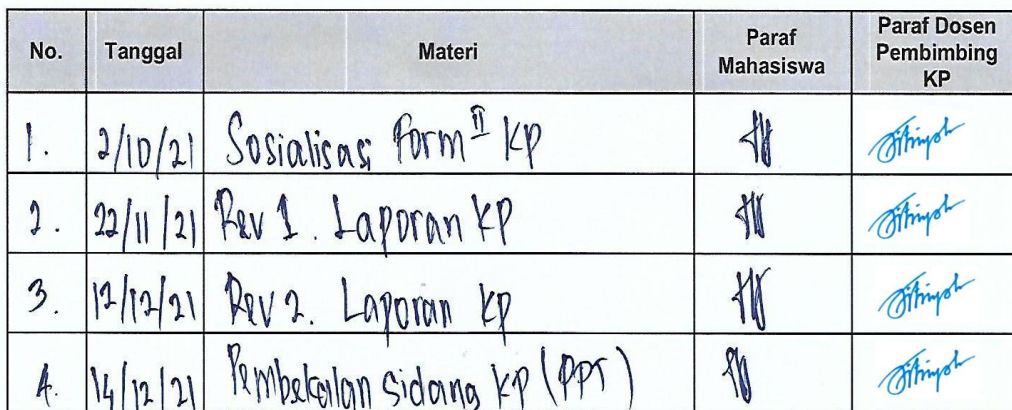 No. Tanggal Materi Paraf Mahasiswa Paraf Dosen Pembimbing KP
1. 2/10/21 Sosialisasi Form II KP
2. 22/11/21 Rev 1. Laporan KP
3. 12/12/21 Rev 2. Laporan KP
4. 14/12/21 Pembekalan Sidang KP (PPT)